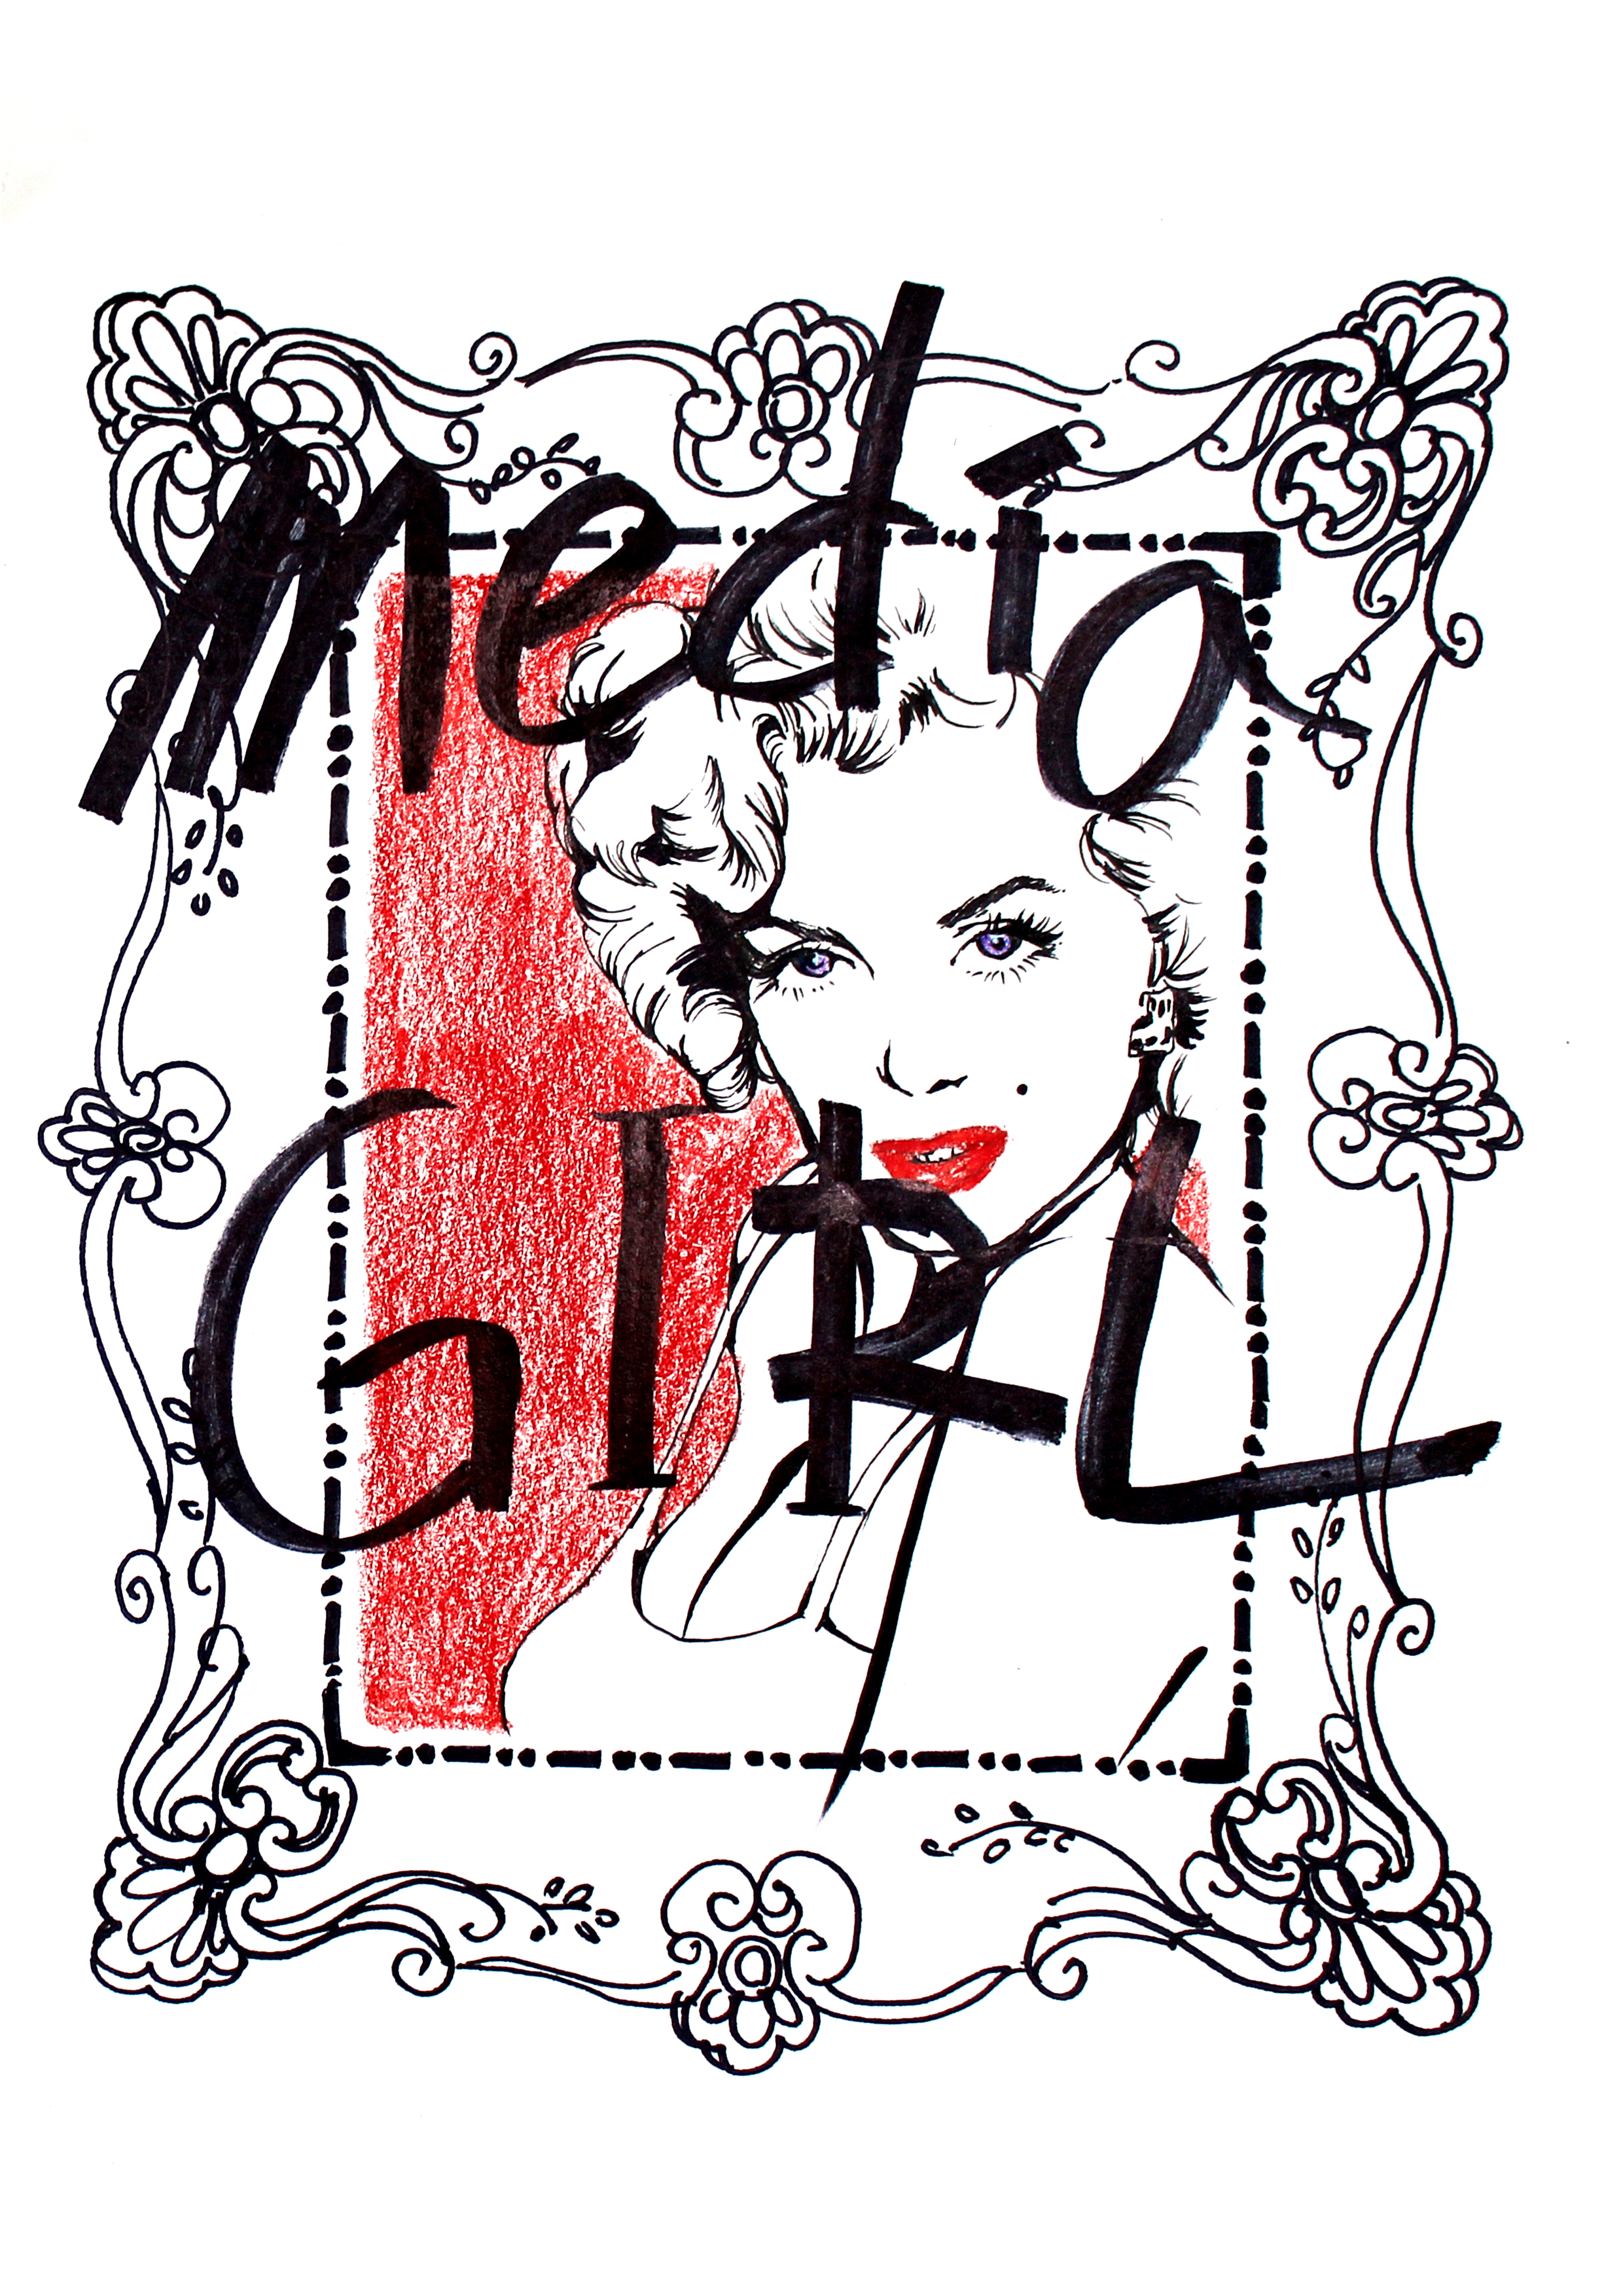 Media
GIRL